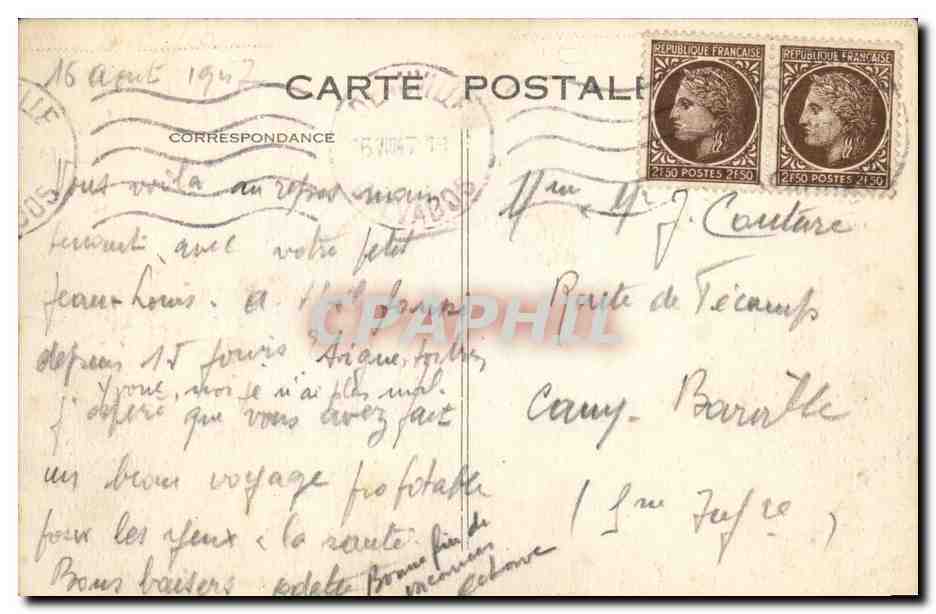 16 Aout 1947
CARTE POSTALE
CORRESPONDANCE
REPUBLIQUE FRANÇAISE
2F50 POSTES 2F50
REPUBLIQUE FRANÇAISE
2F50 POSTES 2F50
VADOS
VADOS
Vous voilà au repos main
tenant avec votre petit
Jean-Louis. a
depuis 15 jours
moi je n'ai plus mal.
J'espère que vous avez fait
un beau voyage profitable
pour les yeux & la santé.
Bons baisers Odette
Bonne fin de
vacances
Mme & Mr J. Couture
Route de Fécamp
Cany-Barville
(Sne Infre)
CPAPHIL